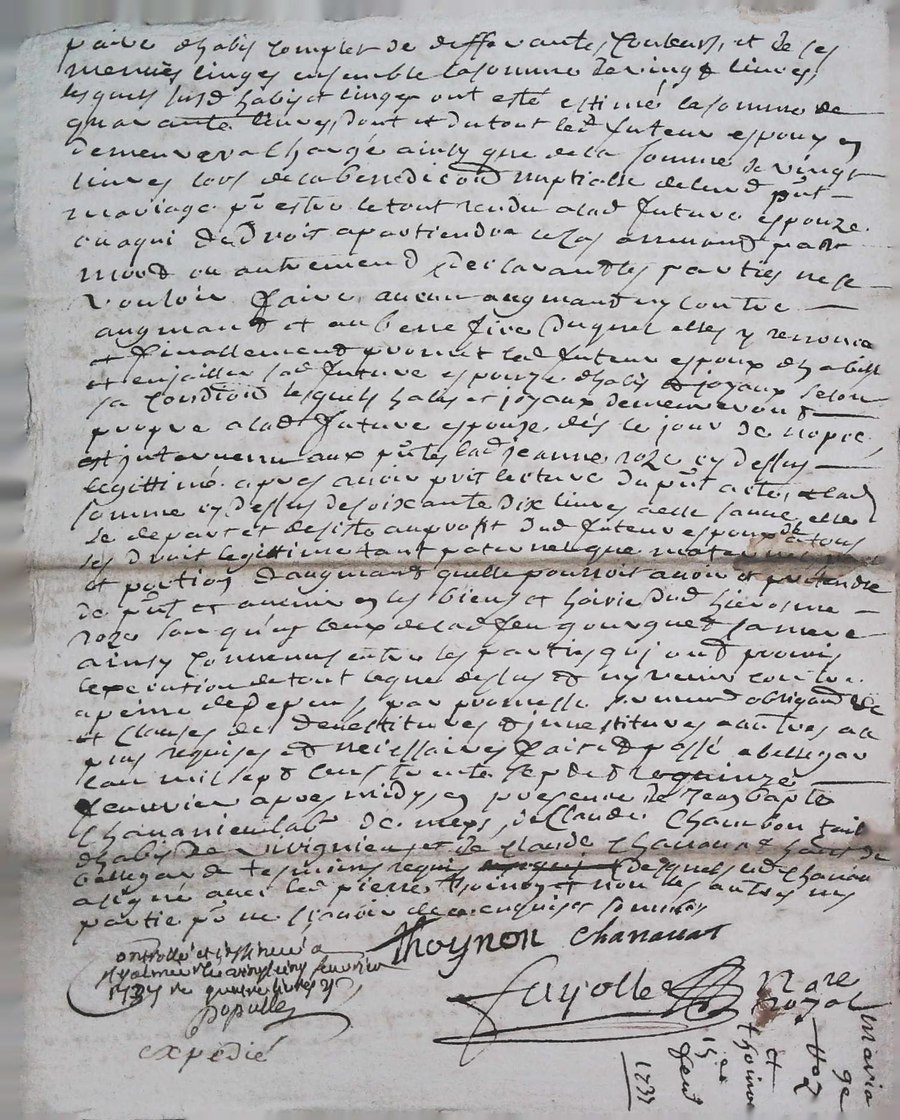 paire dhabis complet de differantes couleurs, et de ses
menues linges ensemble la somme de vingt livres,
lesquels susd habis et linges ont esté estimé la somme de
quarante livres, dont et du tout led futeur espoux en
demeurera chargé ainsy que de la somme de vingt
livres lors de la benediction nuptialle de leurd pnt
mariage pr estre le tout rendu a lad future espouze
ou a qui de droit apartiendra le cas arrivand par
mord ou autremend declarand les parties ne se
vouloir faire aucun augmand ny contre
augmand et au beneffice duquel elles y renonce
et finallemend promet led futeur espoux dhabillé
et enjailler sad future espouze dhabis et joyaux selon
sa condition lesquels habis et joyaux demeureront
propre a lad future espouze dès le jour de nopce,
est intervenu aux pntes lad jeanne roze cy dessus
legittimé apres avoir prit lecture du pnt acte, et lad
somme cy dessus de soixante dix livres a elle elle
se depart et desiste au profit dud futeur espoux de tous
ses droit legittime tant paternel que
et portion daugmand quelle pourroit avoir et pretendre
de pnt et avenir en les biens et hoirie dud hierosme
roze en ceux de lad feu sa mere
ainsy convenu entre les parties qui ond promis
lexecution de tout ce que dessus et ny venir contre
a peine de depens, par promesse sermend obligand &c
et clauses de devestitures et investitures autres au
plus requises et necessaires faict et passé a bellegar
lan mil sept cens trente sept et le quinze
feuvrier apres midy, en presence de Jean bapte
labr de meys, de Claude Chambon tail
dhabis de et de Claude de
bellegarde tesmoins requis desquels led
a signé avec led pierre thoinon et non les autres ny
partie pr ne scavoir de ce enquises sommés
thoynon Chanauat
fayolle
controllé et insinué a
st galmier le vingt feuvrier
1737 re quatre livres
populle
expédié
mariage
roze
et
thoinon
15e
feuv
1737